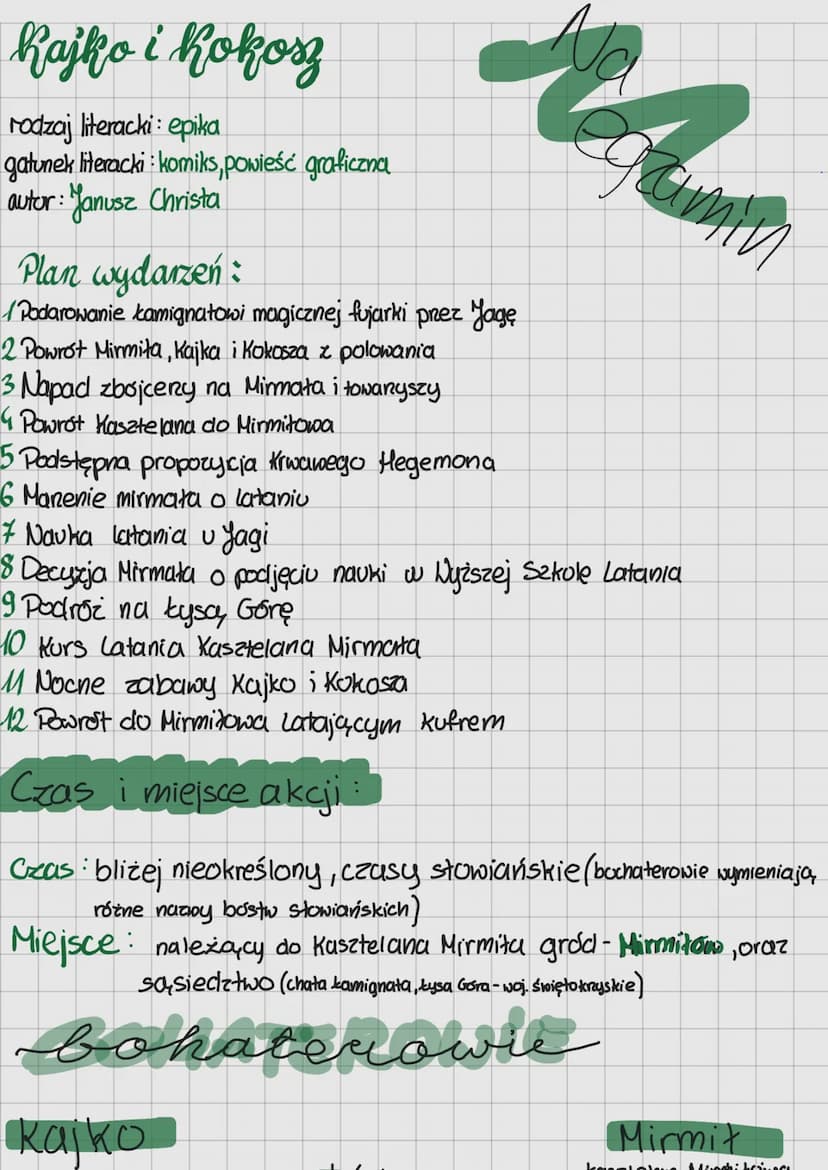 Kajko i Kokosz
Na
egzamin
rodzaj literacki: epika
gatunek literacki: komiks, powieść graficzna
autor: Janusz Christa
Plan wydarzeń:
1 Podarowanie Łamignatowi magicznej fujarki przez Jagę
2 Powrót Mirmiła, Kajka i Kokosza z polowania
3 Napad zbójcerzy na Mirmała i towarzyszy
4 Powrót Kasztelana do Mirmiłowa
5 Podstępna propozycja Krwawego Hegemona
6 Marzenie mirmała o lataniu
7 Nauka latania u Jagi
8 Decyzja Mirmała o podjęciu nauki w Wyższej Szkole Latania
9 Podróż na Łysą Górę
10 Kurs Latania Kasztelana Mirmała
11 Nocne zabawy Kajko i Kokosza
12 Powrót do Mirmiłowa Latającym kufrem
Czas i miejsce akcji:
Czas: bliżej nieokreślony, czasy słowiańskie (bochaterowie wymieniają
różne nazwy bóstw słowiańskich)
Miejsce: należący do Kasztelana Mirmiła gród - Mirmiłów, oraz
sąsiedztwo (chata Łamignata, Łysa Góra - woj. świętokrzyskie)
bohaterowie
Kajko
Mirmił